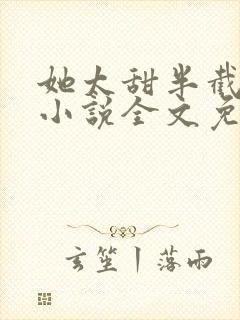 她太甜半截
小説全文免
玄笙丨落雨